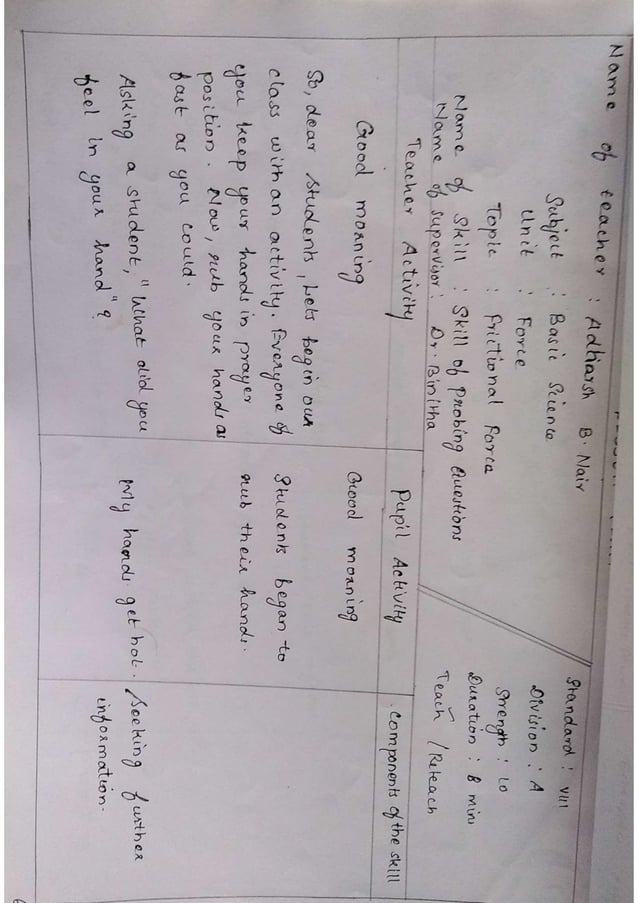 Name of teacher : Adharsh B. Nair
Subject : Basic Science
Unit : Force
Topic : Frictional Force
Name of Skill : Skill of Probing Questions
Name of supervisor : Dr. Binitha
Standard : VIII
Division : A
Strength : 10
Duration : 8 mins
Teach / Reteach
Teacher Activity
Pupil Activity
Components of the skill
Good morning
Good morning
So, dear students, Lets begin our
class with an activity. Everyone of
you keep your hands in prayer
position. Now, rub your hand as
fast as you could.
Students began to
rub their hands.
Asking a student, "What did you
feel in your hand"?
My hands get hot.
Seeking further
information.